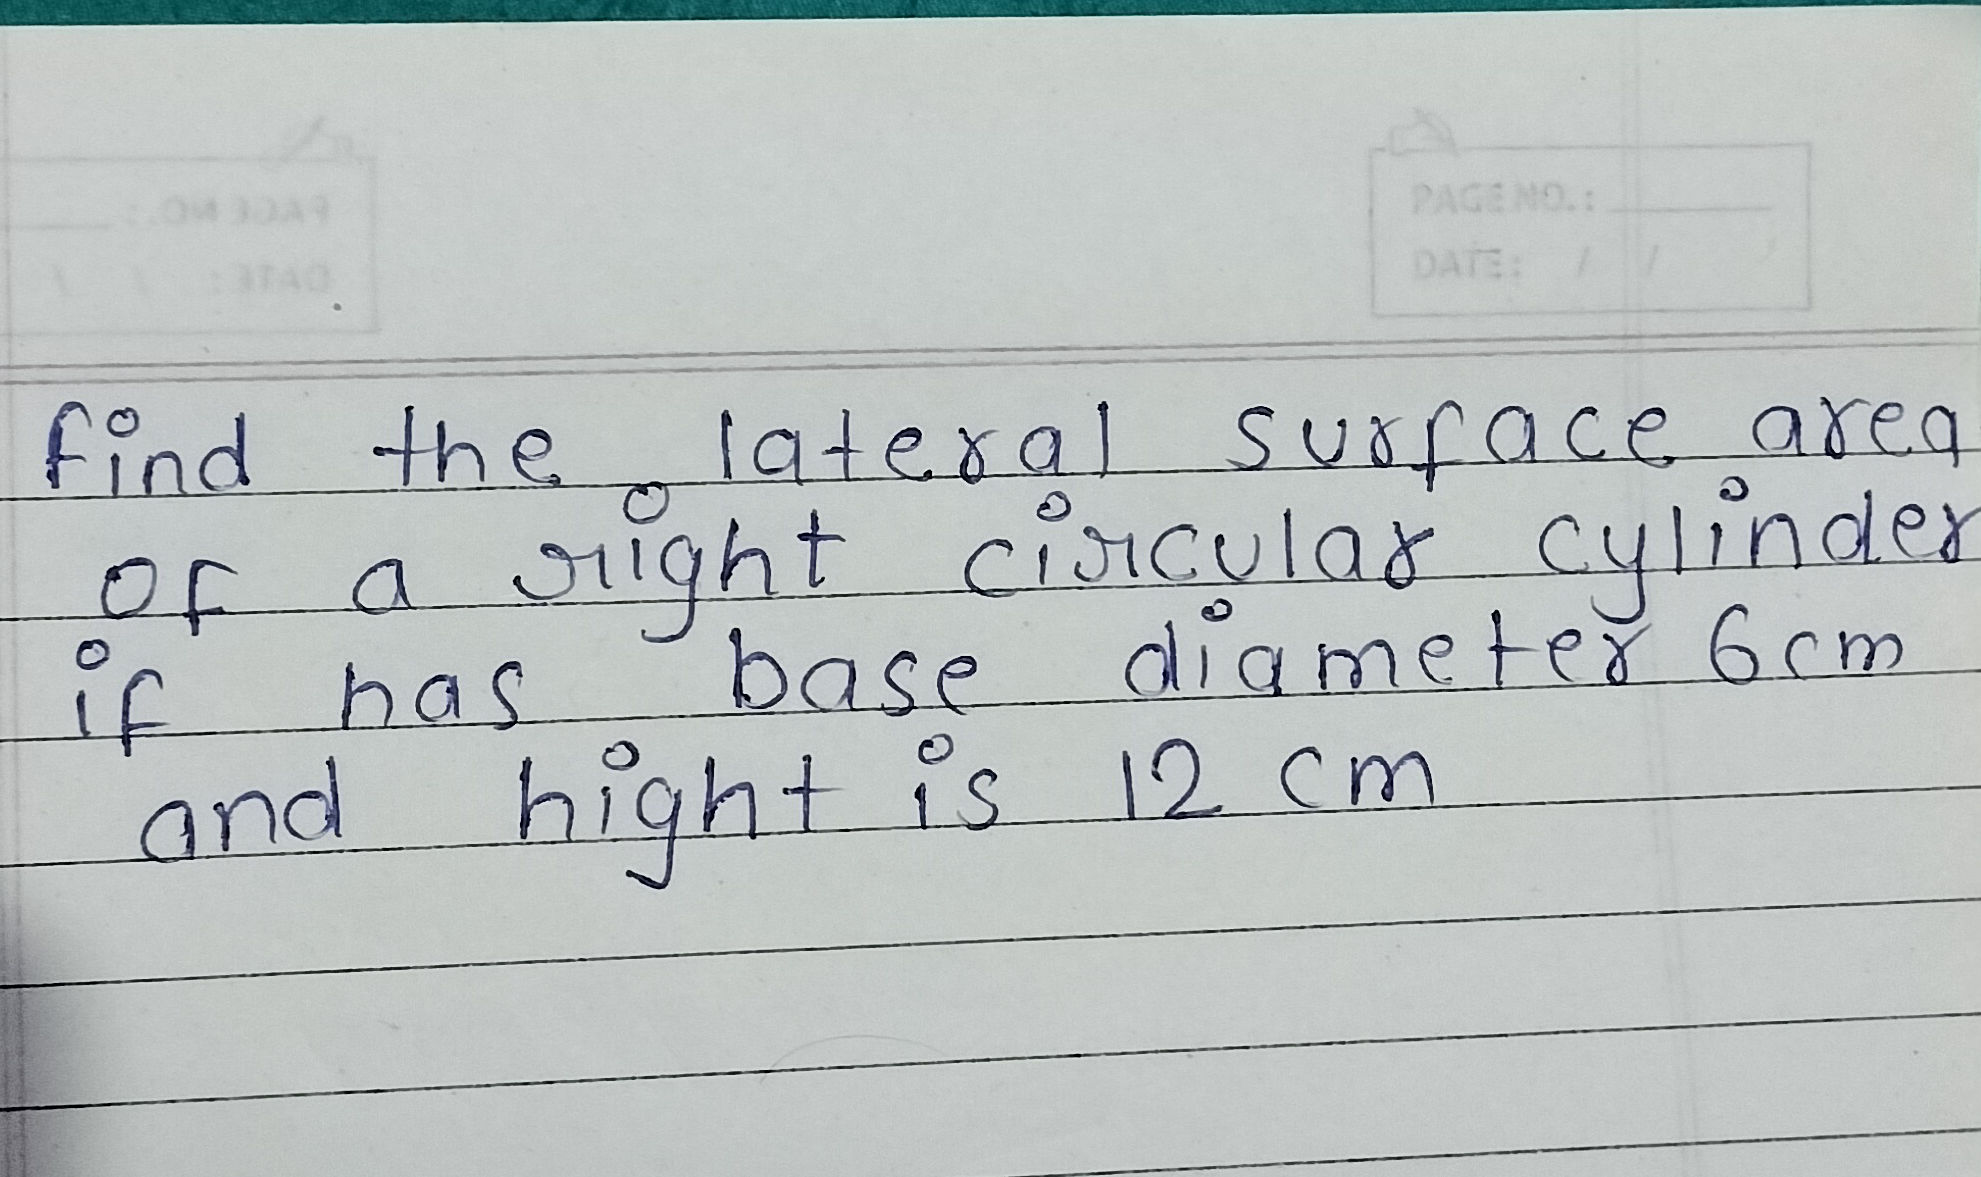 PAGE NO.:
DATE: / /
PAGE NO.:
DATE: / /
find the lateral surface area
of a right circular cylinder
if has base diameter 6cm
and hight is 12 cm